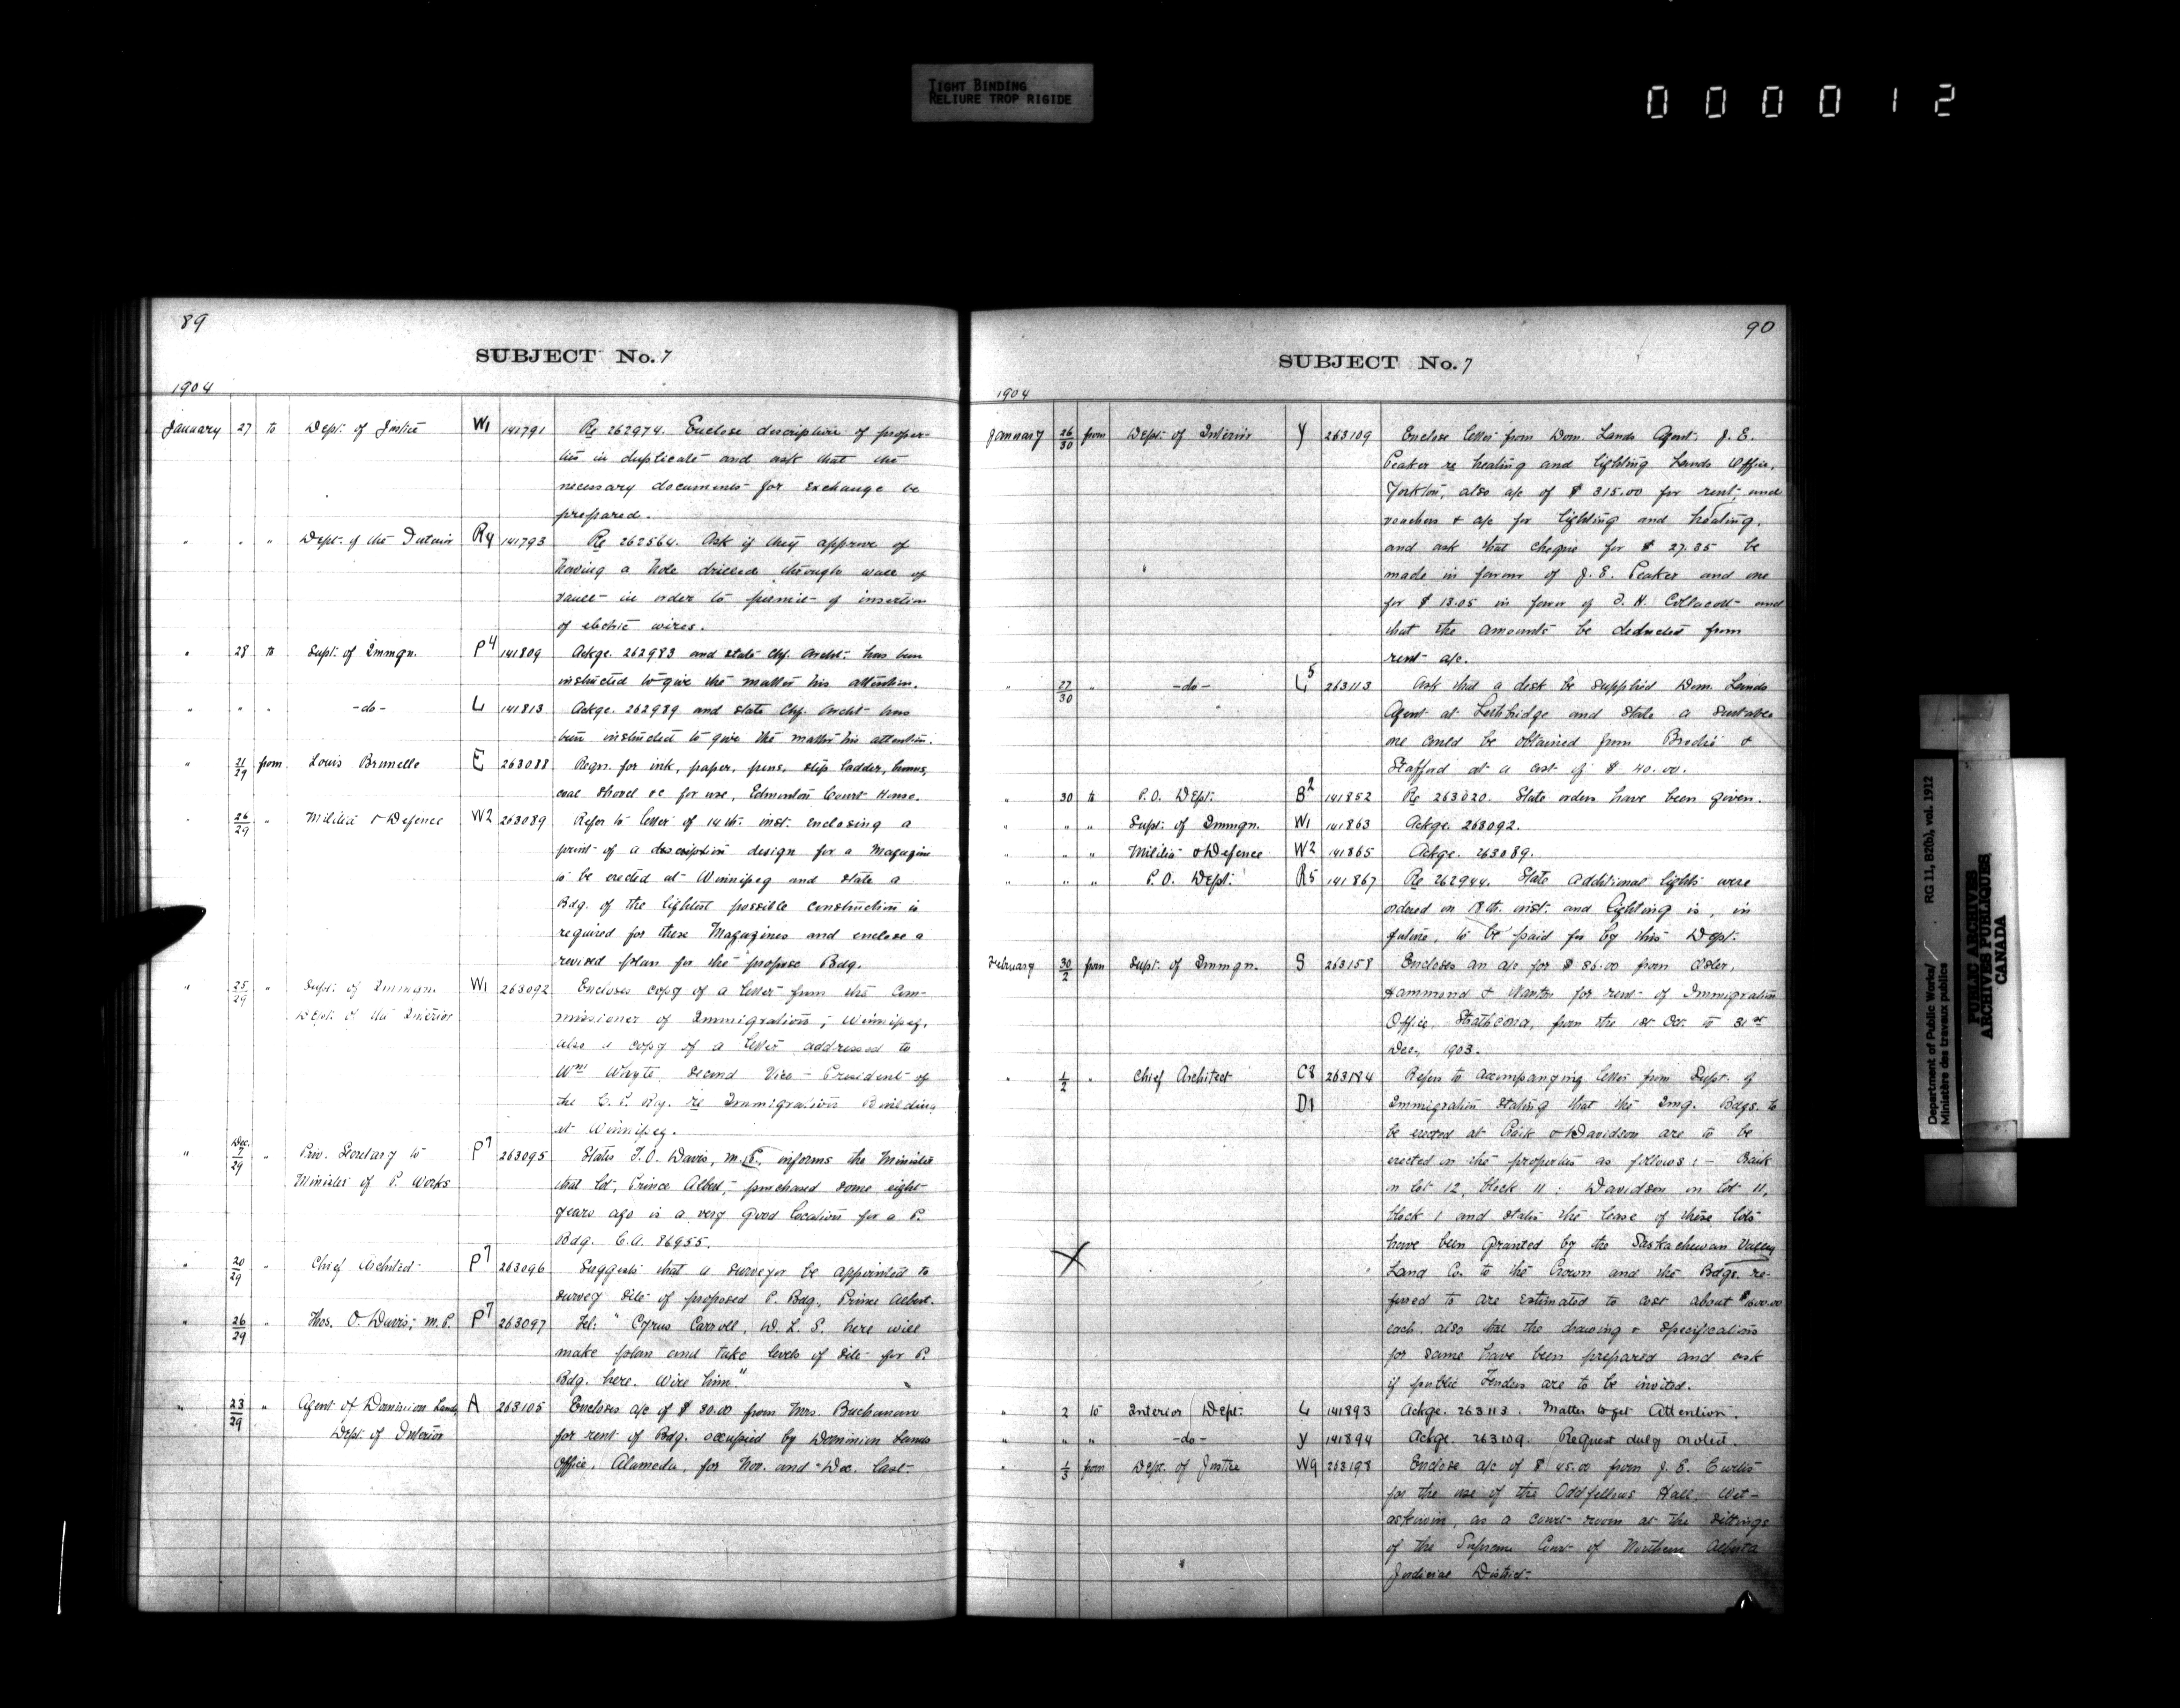 TIGHT BINDING
RELIURE TROP RIGIDE
000012
89
SUBJECT No. 7
1904
January 27 to Dept. of Justice W1 141791 Re 262974. Enclose description of proper-
ties in duplicate and ask that the
necessary documents for exchange be
prepared.
" " " Dept. of the Interior R4 141793 Re 262564. Ask if they approve of
having a hole drilled through wall of
vault in order to permit of insertion
of electric wires.
" 28 to Supt. of Immgn. P4 141809 Ackge. 262983 and state Chf. Archt. has been
instructed to give the matter his attention.
" " " -do- L 141813 Ackge. 262989 and state Chf. Archt has
been instructed to give the matter his attention.
" 21/29 from Louis Brunelle E 263088 Reqn. for ink, paper, pens, step ladder,
coal shovel &c for use, Edmonton Court House.
" 26/29 " Militia & Defence W2 263089 Refer to letter of 14th. inst. enclosing a
print of a description design for a Magazine
to be erected at Winnipeg and state a
Bdg. of the lightest possible construction is
required for these Magazines and enclose a
revised plan for the propose Bdg.
" 25/29 " Supt. of Immgn. W1 263092 Encloses copy of a letter from the Com-
Dept. of the Interior missioner of Immigration, Winnipeg,
also a copy of a letter addressed to
Wm Whyte, Second Vice-President of
the C. P. Ry. re Immigration Building
at Winnipeg.
" Dec. 7/29 " Priv. Secretary to P7 263095 States T. O. Davis, M.P., informs the Minister
Minister of P. Works that lot, Prince Albert, purchased some eight
years ago is a very good location for a P.
Bdg. C.A. 86955.
" 20/29 " Chief Architect P7 263096 Suggests that a surveyor be appointed to
survey site of proposed P. Bdg., Prince Albert.
" 26/29 " Thos. O. Davis, M.P. P7 263097 Tel: "Cyrus Carroll, D. L. S. here will
make plan and take levels of site for P.
Bdg. here. Wire him"
" 23/29 " Agent of Dominion Lands, A 263105 Encloses a/c of $ 30.00 from Mrs. Buchanan
Dept. of Interior for rent of Bdg. occupied by Dominion Lands
Office, Alameda, for Nov. and Dec. last.
90
SUBJECT No. 7
1904
January 26/30 from Dept. of Interior Y 263109 Enclose letter from Dom. Lands Agent, J. E.
Peaker re heating and lighting Lands Office,
Yorkton, also a/c of $ 315.00 for rent, and
vouchers & a/c for lighting and heating,
and ask that cheque for $ 27.35 be
made in favour of J. E. Peaker and one
for $ 13.05 in favor of J. H. Collacott and
that the amounts be deducted from
rent a/c.
" 27/30 " -do- L5 263113 Ask that a desk be supplied Dom. Lands
Agent at Lethbridge and state a suitable
one could be obtained from Brodie &
Stafford at a cost of $ 40.00.
" 30 to P.O. Dept. B2 141852 Re 263020. State orders have been given.
" " " Supt. of Immgn. W1 141863 Ackge. 263092.
" " " Militia & Defence W2 141865 Ackge. 263089.
" " " P.O. Dept. R5 141867 Re 262944. State additional lights were
ordered on 18th. inst. and lighting is, in
future, to be paid for by this Dept.
February 30/2 from Supt. of Immgn. S 263158 Encloses an a/c for $ 36.00 from Osler,
Hammond & Nanton for rent of Immigration
Office, Strathcona, from the 1st Oct. to 31st
Dec., 1903.
" 1/2 " Chief Architect C8 263184 Refers to accompanying letter from Supt. of
D1 Immigration stating that the Img. Bdgs. to
be erected at Craik & Davidson are to be
erected on the properties as follows:- Craik
on lot 12, block 11; Davidson on lot 11,
block 1 and states the lease of these lots
have been granted by the Saskachewan Valley
X Land Co. to the Crown and the Bdgs. re-
ferred to are estimated to cost about $1600.00
each, also that the drawing & specifications
for same have been prepared and ask
if public Tenders are to be invited.
" 2 to Interior Dept. L 141893 Ackge. 263113. Matter to get Attention.
" " " -do- Y 141894 Ackge. 263109. Request duly noted.
" 1/3 from Dept. of Justice W9 263198 Enclose a/c of $ 45.00 from J. E. Curtis
for the use of the Oddfellows Hall, Wet-
askiwin, as a court room at the sittings
of the Supreme Court of Northern Alberta
Judicial District.
Department of Public Works/ RG 11, B2(b), vol. 1912
Ministère des travaux publics
PUBLIC ARCHIVES
ARCHIVES PUBLIQUES
CANADA